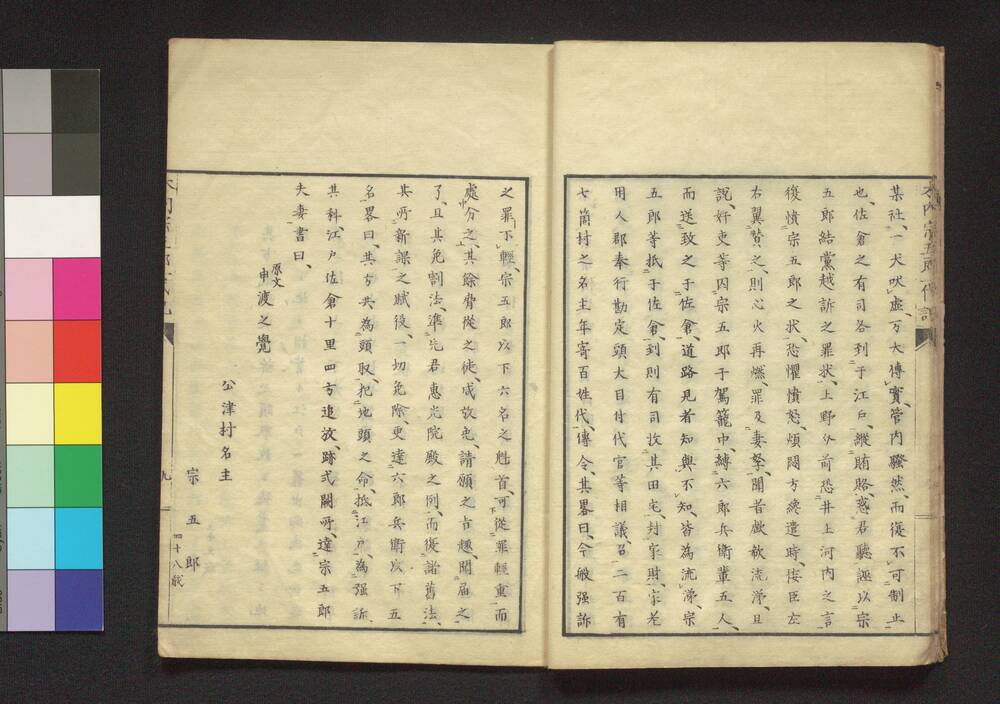 某社、一犬吠虚、万犬傳實、管内騷然、而復不可制止
也、佐倉之有司各到于江戸、縱賄賂、惑君聽、誣以宗
五郎結黨越訴之罪状、上野分前恐井上河内之言、
後憤宗五郎之状、恐懼憤怒、煩悶方終遣時、侫臣左
右翼賛之、則心火再燃、罪及妻孥、聞者歔欷流涕、且
説、奸吏等囚宗五郎于駕籠中、縛六郎兵衛輩五人、
而送致之于佐倉、道路見者知與不知皆為流涕、宗
五郎等抵于佐倉、到則有司收其田宅、封家財、家老
用人郡奉行勘定頭大目付代官等相議、召二百有
七箇村之名主年寄百姓代、傳令、其畧曰、今般强訴
之罪、下輕、宗五郎以下六名之魁首、可從罪輕重而
處分之、其餘脅從之徒、咸放免、請願之旨趣、聞届之
了、且其免割法、準先君惠光院殿之例、而復諸舊法、
其所新課之賦後、一切免除、更達六郎兵衛以下五
名畧曰、其方共為頭取、犯地頭之命、抵江戸、為强訴、
其科、江戸佐倉十里四方追放、跡式闕所、達宗五郎
夫妻書曰、
原文
申渡之覺
公津村名主
宗五郎
四十八歳
九